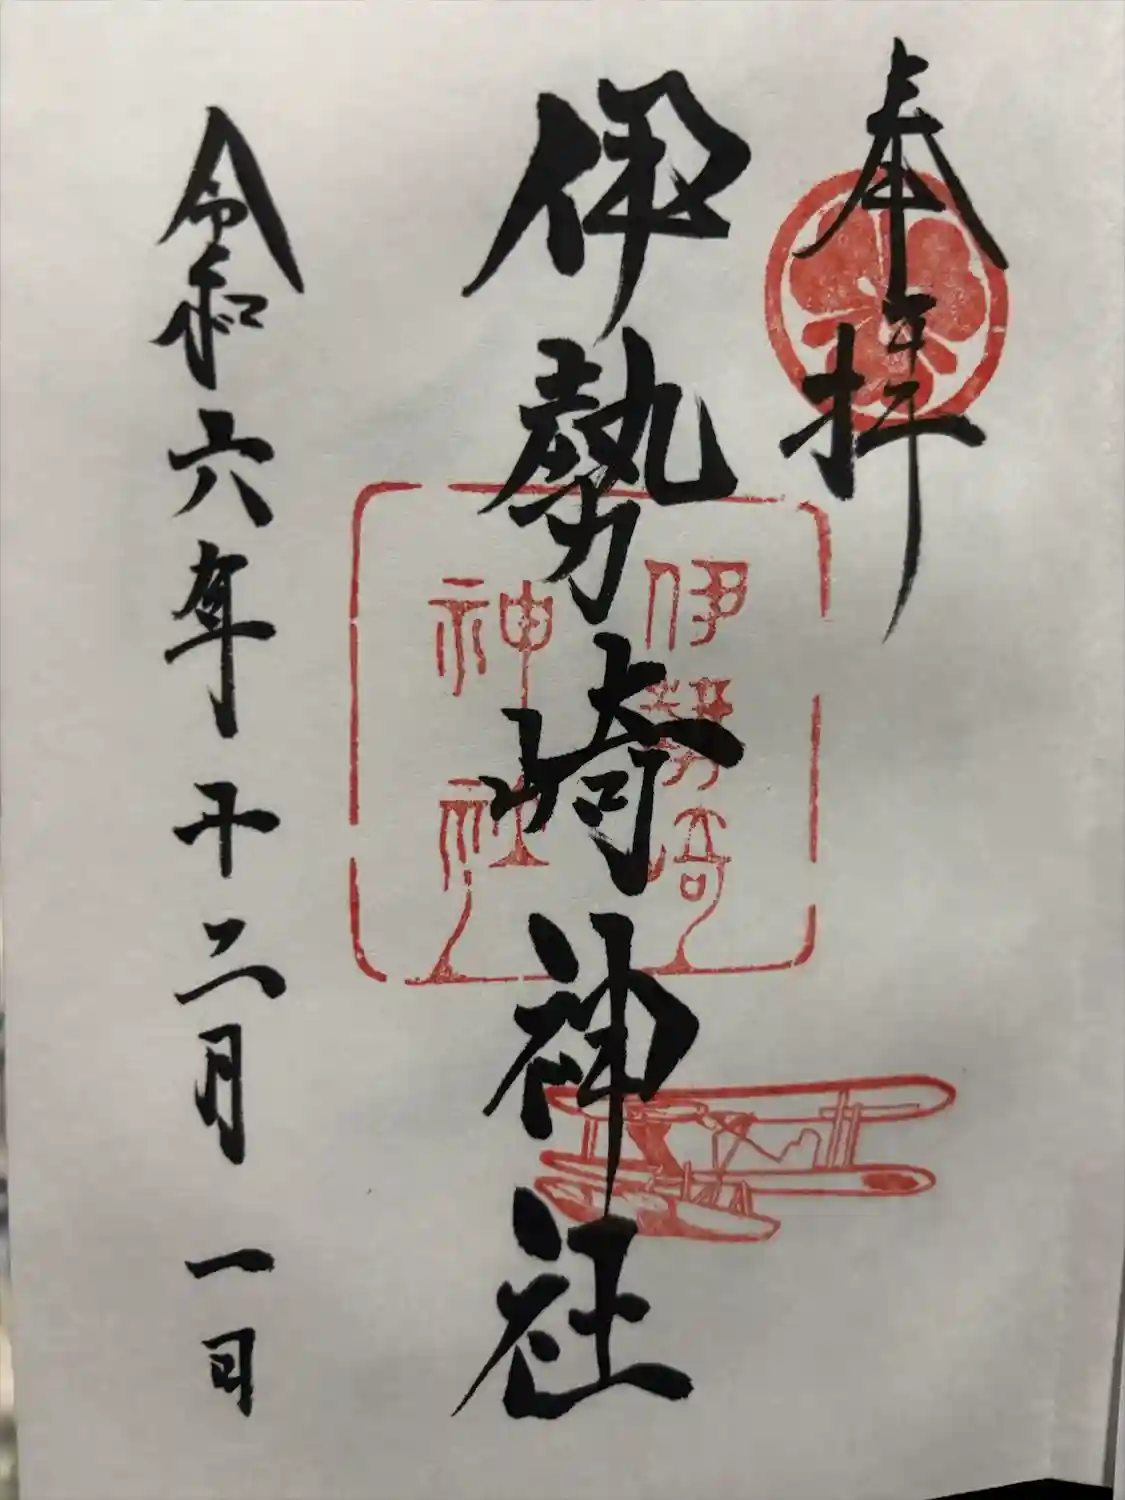 奉拝
伊勢崎神社
伊勢崎
神社
令和六年十二月一日